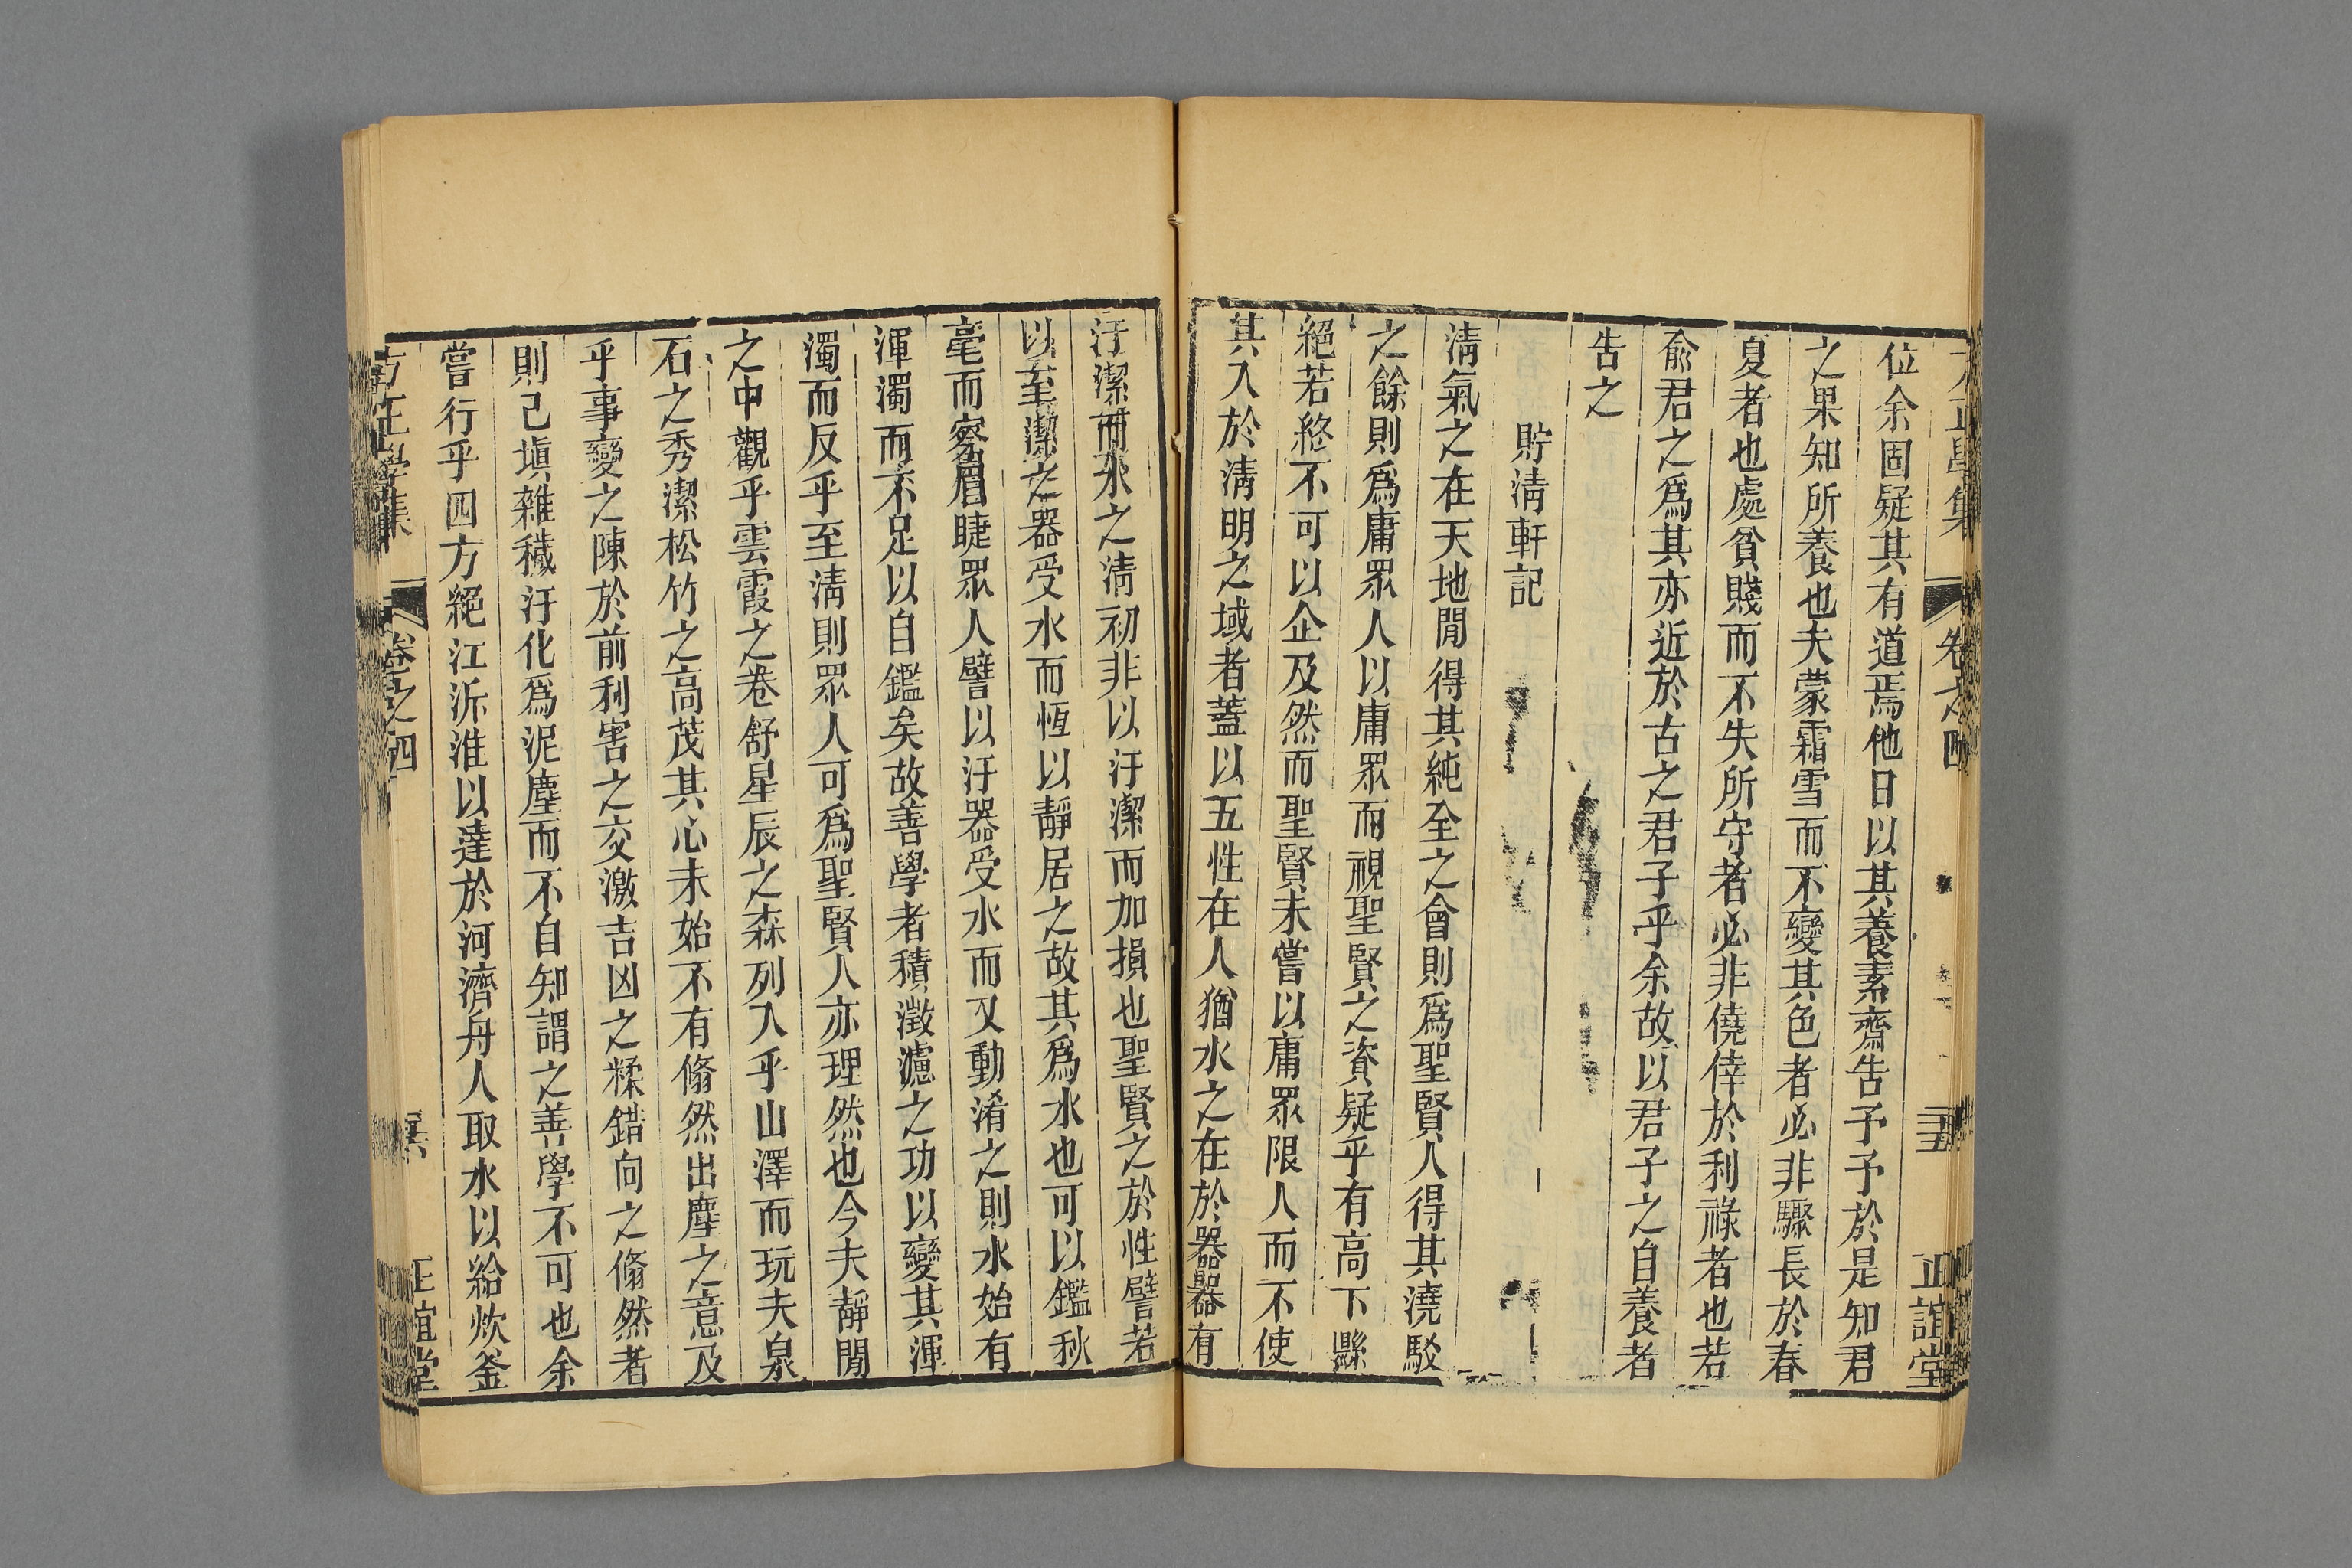 正學集 卷之四 正誼堂
位余固疑其有道焉他日以其養素齋告予予於是知君
之果知所養也夫蒙霜雪而不變其色者必非驟長於春
夏者也處貧賤而不失所守者必非僥倖於利祿者也若
兪君之爲其亦近於古之君子乎余故以君子之自養者
告之
貯淸軒記
淸氣之在天地閒得其純全之會則爲聖賢人得其澆駁
之餘則爲庸眾人以庸眾而視聖賢之資疑乎有高下縣
絕若終不可以企及然而聖賢未嘗以庸眾限人而不使
其入於淸明之域者蓋以五性在人猶水之在於器器有
汙潔而水之淸初非以汙潔而加損也聖賢之於性譬若
以至潔之器受水而恆以靜居之故其爲水也可以鑑秋
毫而察眉睫眾人譬以汙器受水而又動淆之則水始有
渾濁而不足以自鑑矣故善學者積澂濾之功以變其渾
濁而反乎至淸則眾人可爲聖賢人亦理然也今夫靜閒
之中觀乎雲霞之卷舒星辰之森列入乎山澤而玩夫泉
石之秀潔松竹之高茂其心未始不有翛然出塵之意及
乎事變之陳於前利害之交激吉凶之糅錯向之翛然者
則已塡雜穢汙化爲泥塵而不自知謂之善學不可也余
嘗行乎四方絕江泝淮以達於河濟舟人取水以給炊釜
方正學集 卷之四 正誼堂